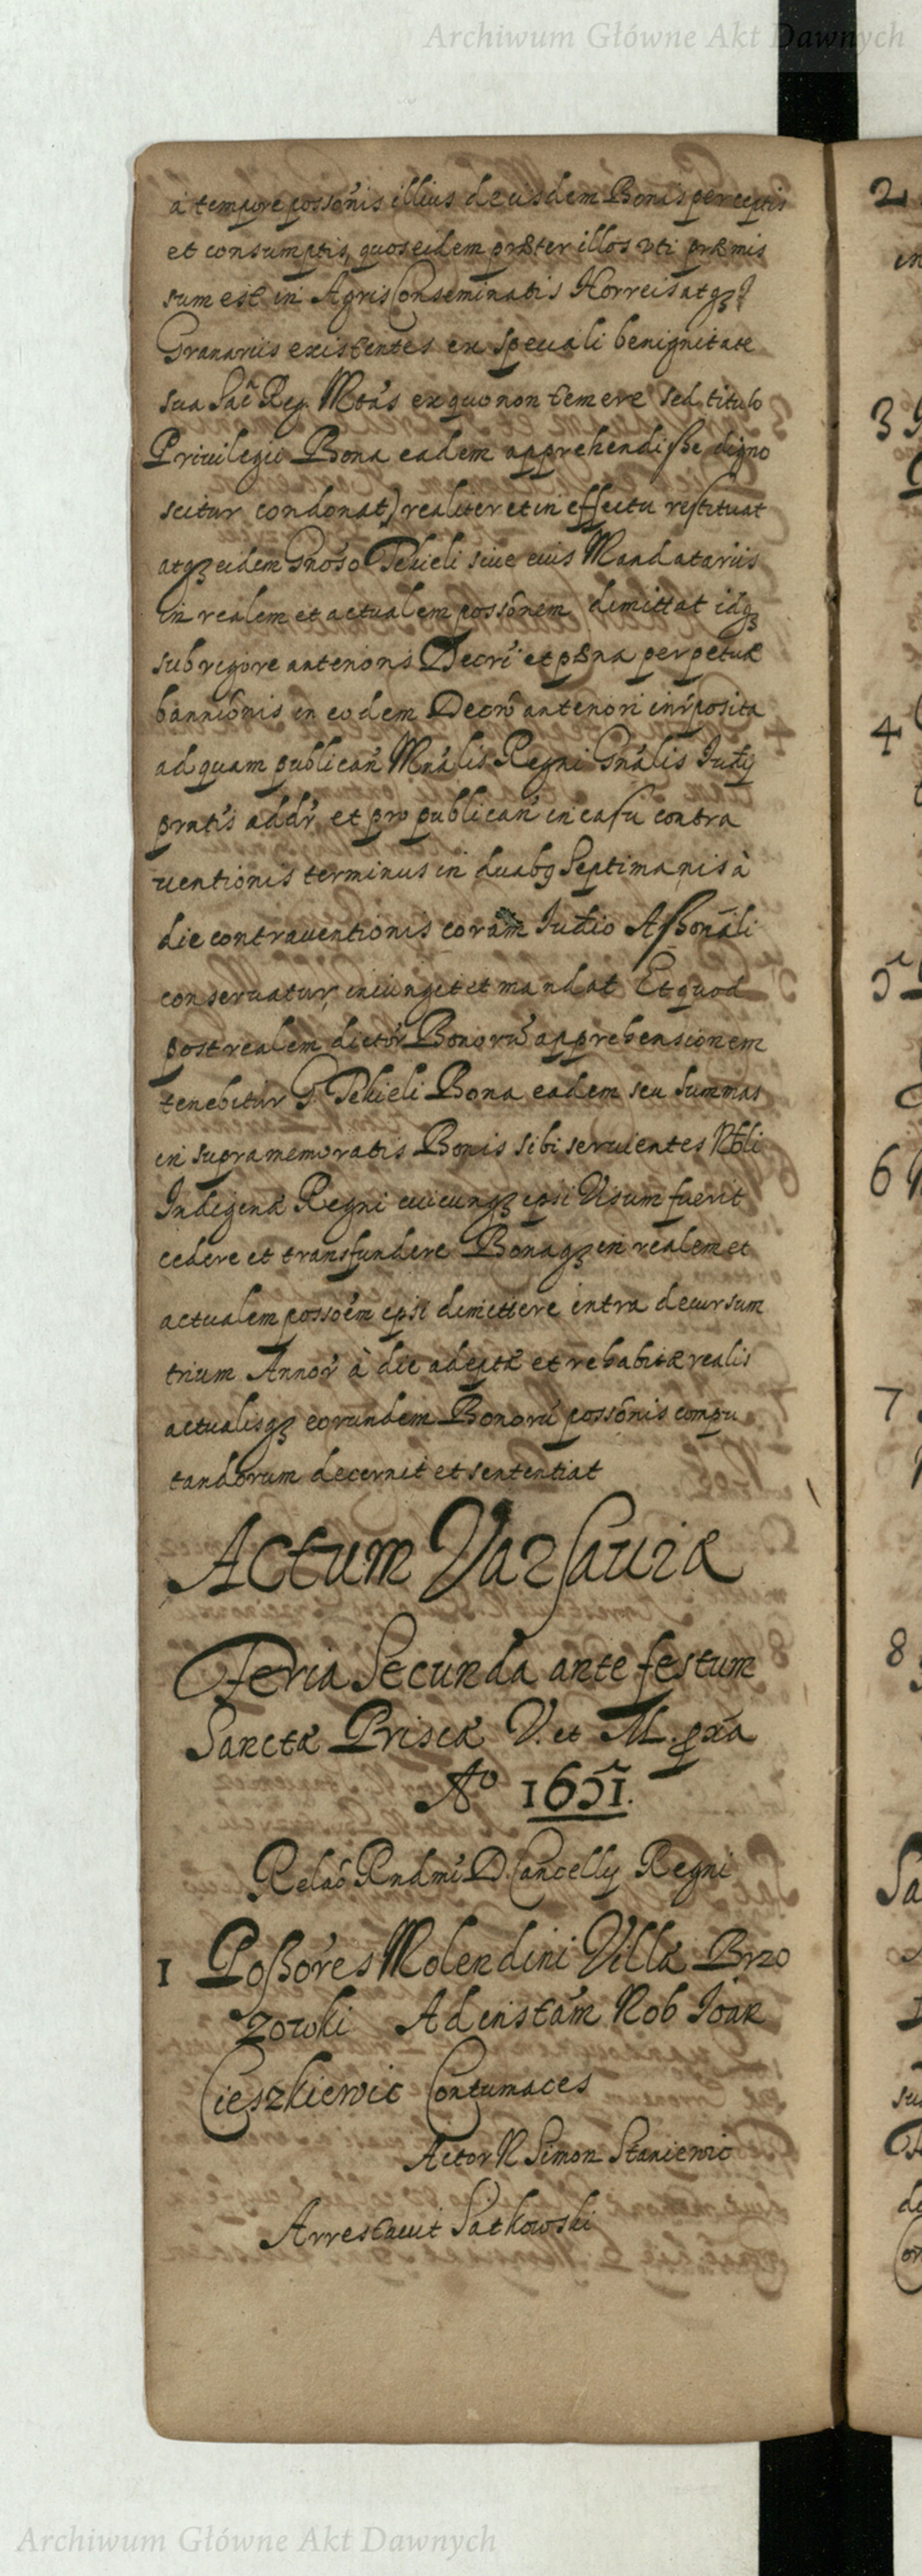 Archiwum Główne Akt Dawnych
à tempore possoñis illius de eisdem Bonis perceptis
et consumptis, quos eidem præter illos uti præmis
sum est in Agris Conseminatis Horreis atqȝ
Granariis existentes ex speciali benignitate
sua Sac̃ Reg. Mt̃as ex quo non temere sed titulo
Privilegii Bona eadem apprehendisse digno
scitur condonat) realiter et in effectu restituat
atqȝ eidem Gnoso Tekieli sive eius Mandatariis
in realem et actualem possoñem dimittat idqȝ
sub rigore anterioris Decri et pæna perpetuæ
bannionis in eodem Decro anteriori interposita
ad quam publicañ Mn̄alis Regni Gn̄alis Iudij
partis addr̃ et pro publicañ in casu contra
ventionis terminus in duabȝ Septimanis à
die contraventionis coram Iudio Asson̄ali
conservatur, iniungit et mandat Et quod
post realem dictor̃ Bonorũ apprehensionem
tenebitur G. Tekieli Bona eadem seu summas
in supramemoratis Bonis sibi servientes Nbli
Indigenæ Regni cuicunqȝ ipsi Visum fuerit
cedere et transfundere Bonaqȝ in realem et
actualem possoẽm ipsi dimittere intra decursum
trium Annor̃ à die adeptæ et rehabitæ realis
actualisqȝ eorundem Bonorũ possoñis compu
tandorum decernit et sententiat
Actum Varsaviæ
Feria Secunda ante festum
Sanctæ Priscæ V. et M. pxa
Aº 1651.
Relaõ Rndmi D. Cancellij Regni
1 Possores Molendini Villæ Brzo
zowki Ad enstam Nob Ioan
Cieszkiewic Contumaces
Actor N Simon Staniewic
Arrestavit Satkowski
2
3
4
5
6
7
8
Archiwum Główne Akt Dawnych